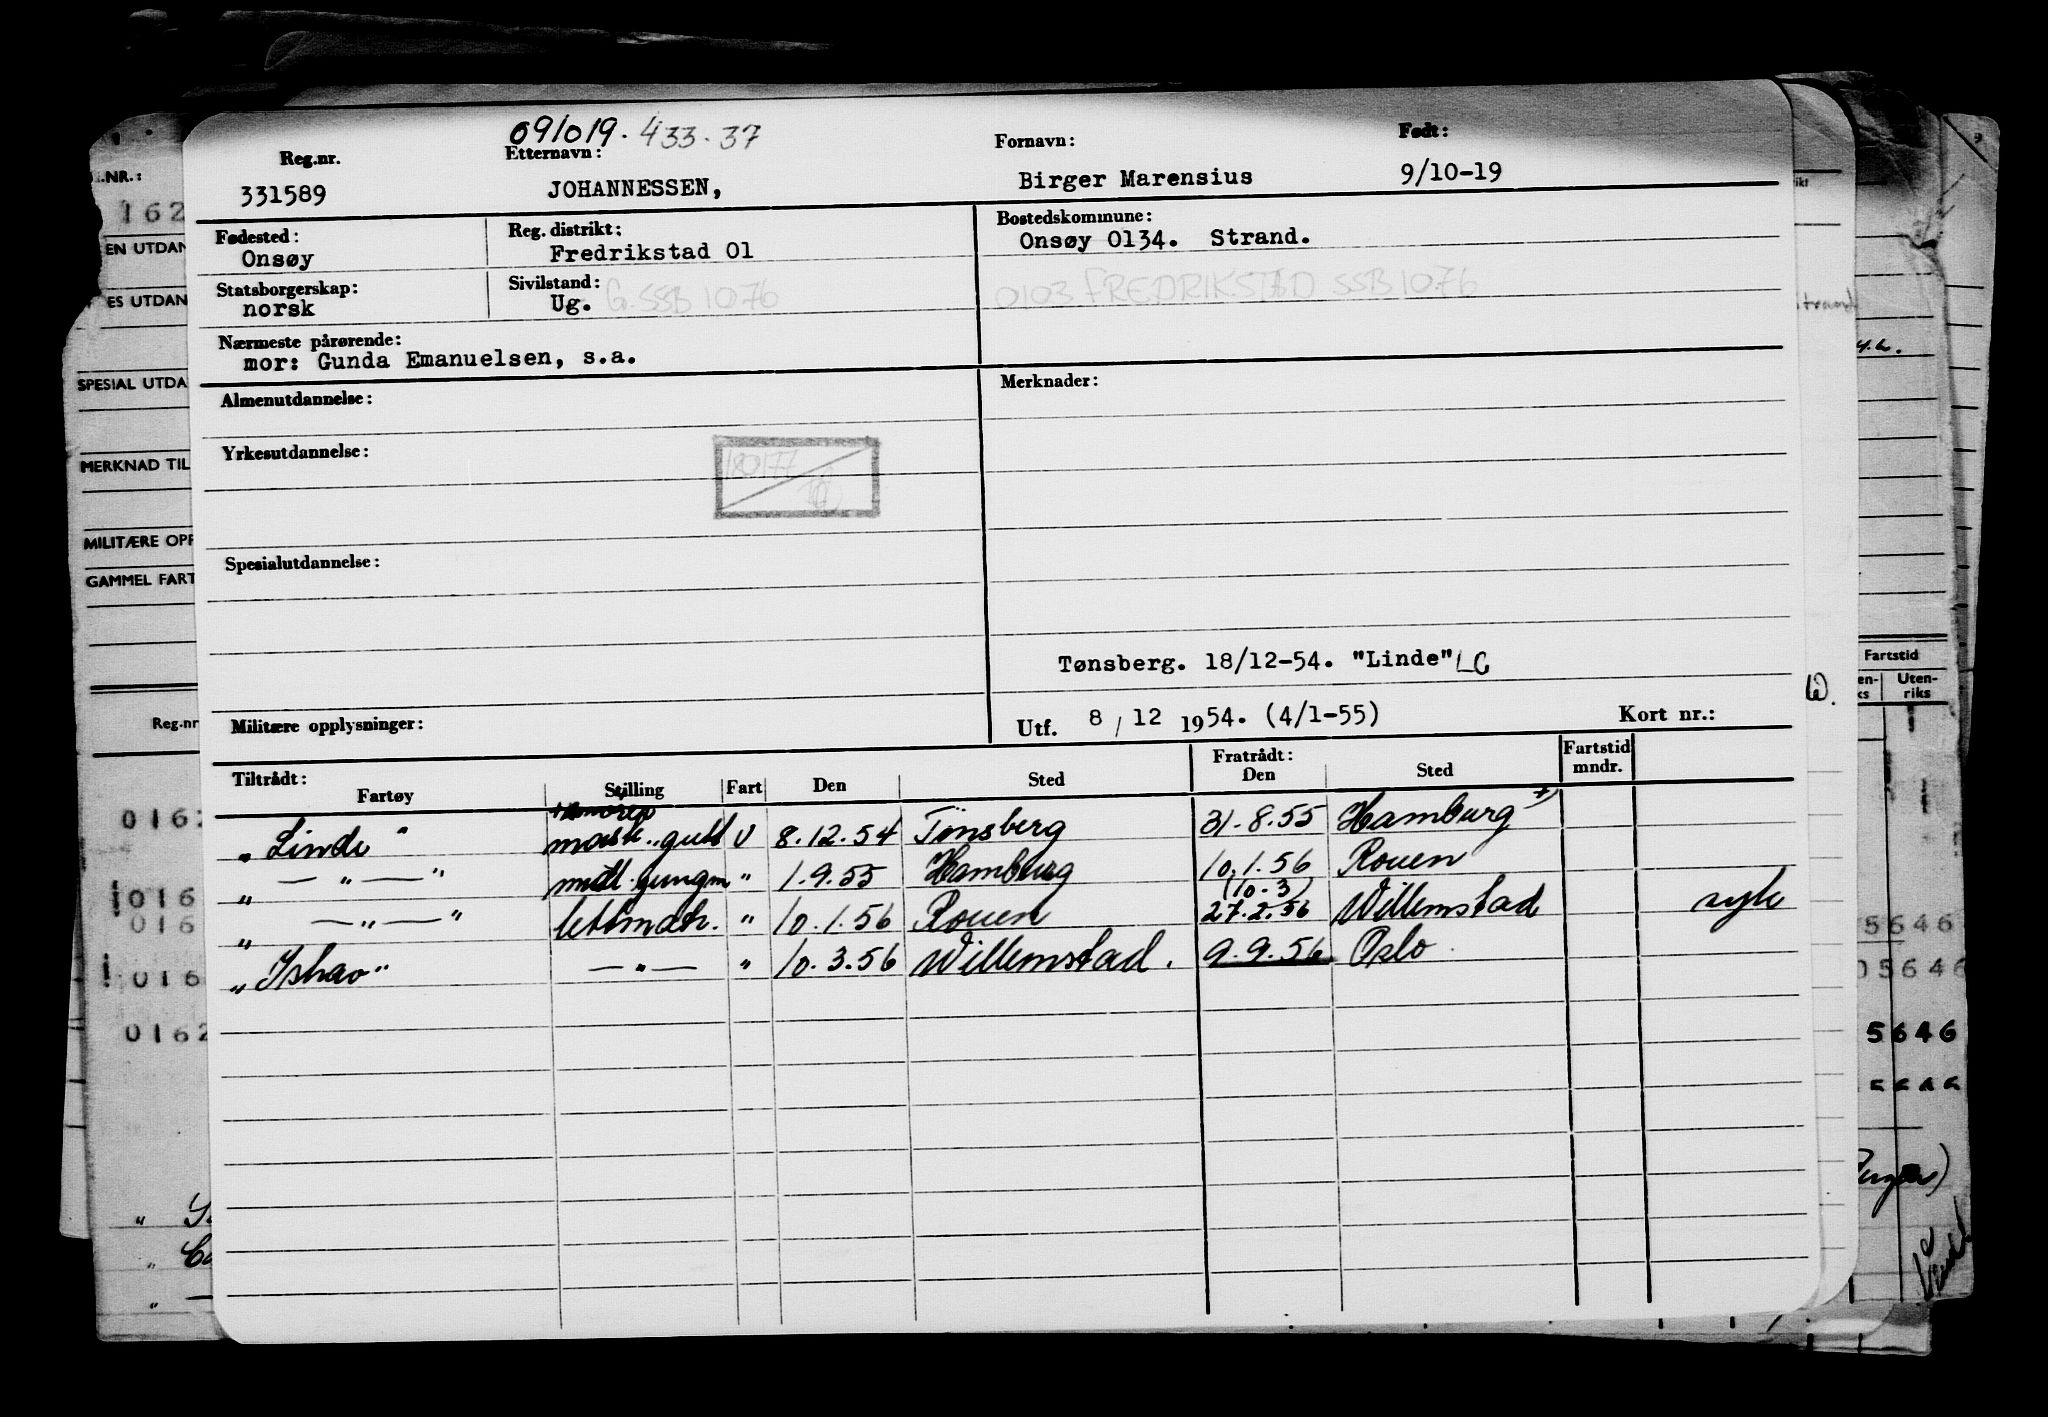 091019. 433.37
Reg.nr. Etternavn: Fornavn: Født:
331589 JOHANNESSEN, Birger Marensius 9/10-19
Fødested: Reg. distrikt: Bostedskommune:
Onsøy Fredrikstad 01 Onsøy 0134. Strand.
Statsborgerskap: Sivilstand:
norsk Ug. G. SSB 1076 0103 FREDRIKSTAD SSB 1076
Nærmeste pårørende:
mor: Gunda Emanuelsen, s.a.
Almenutdannelse: Merknader:
Yrkesutdannelse:
180177
Spesialutdannelse:
Tønsberg. 18/12-54. "Linde" LC
Militære opplysninger: Utf. 8 / 12 1954. (4/1-55) Kort nr.:
Tiltrådt: Fratrådt: Fartstid mndr.
Fartøy Stilling Fart Den Sted Den Sted
"Linde" gutt U 8.12.54 Tønsberg 31.8.55 Hamburg +
" — " — " jungm " 1.9.55 Hamburg 10.1.56 Rouen
(10-3)
" — " — " lettmatr. " 10.1.56 Rouen 27.2.56 Willemstad syk
"Ishav" — " — " 10.3.56 Willemstad. 9.9.56 Oslo
.NR.:
162
EN UTDAN
ES UTDAN
SPESIAL UTDA
MERKNAD TIL
MILITÆRE OPP
GAMMEL FART
Reg.nr
0162
016
016
016
0162
Fartstid
Uten-
riks
W.
5646
05646
5646
5646